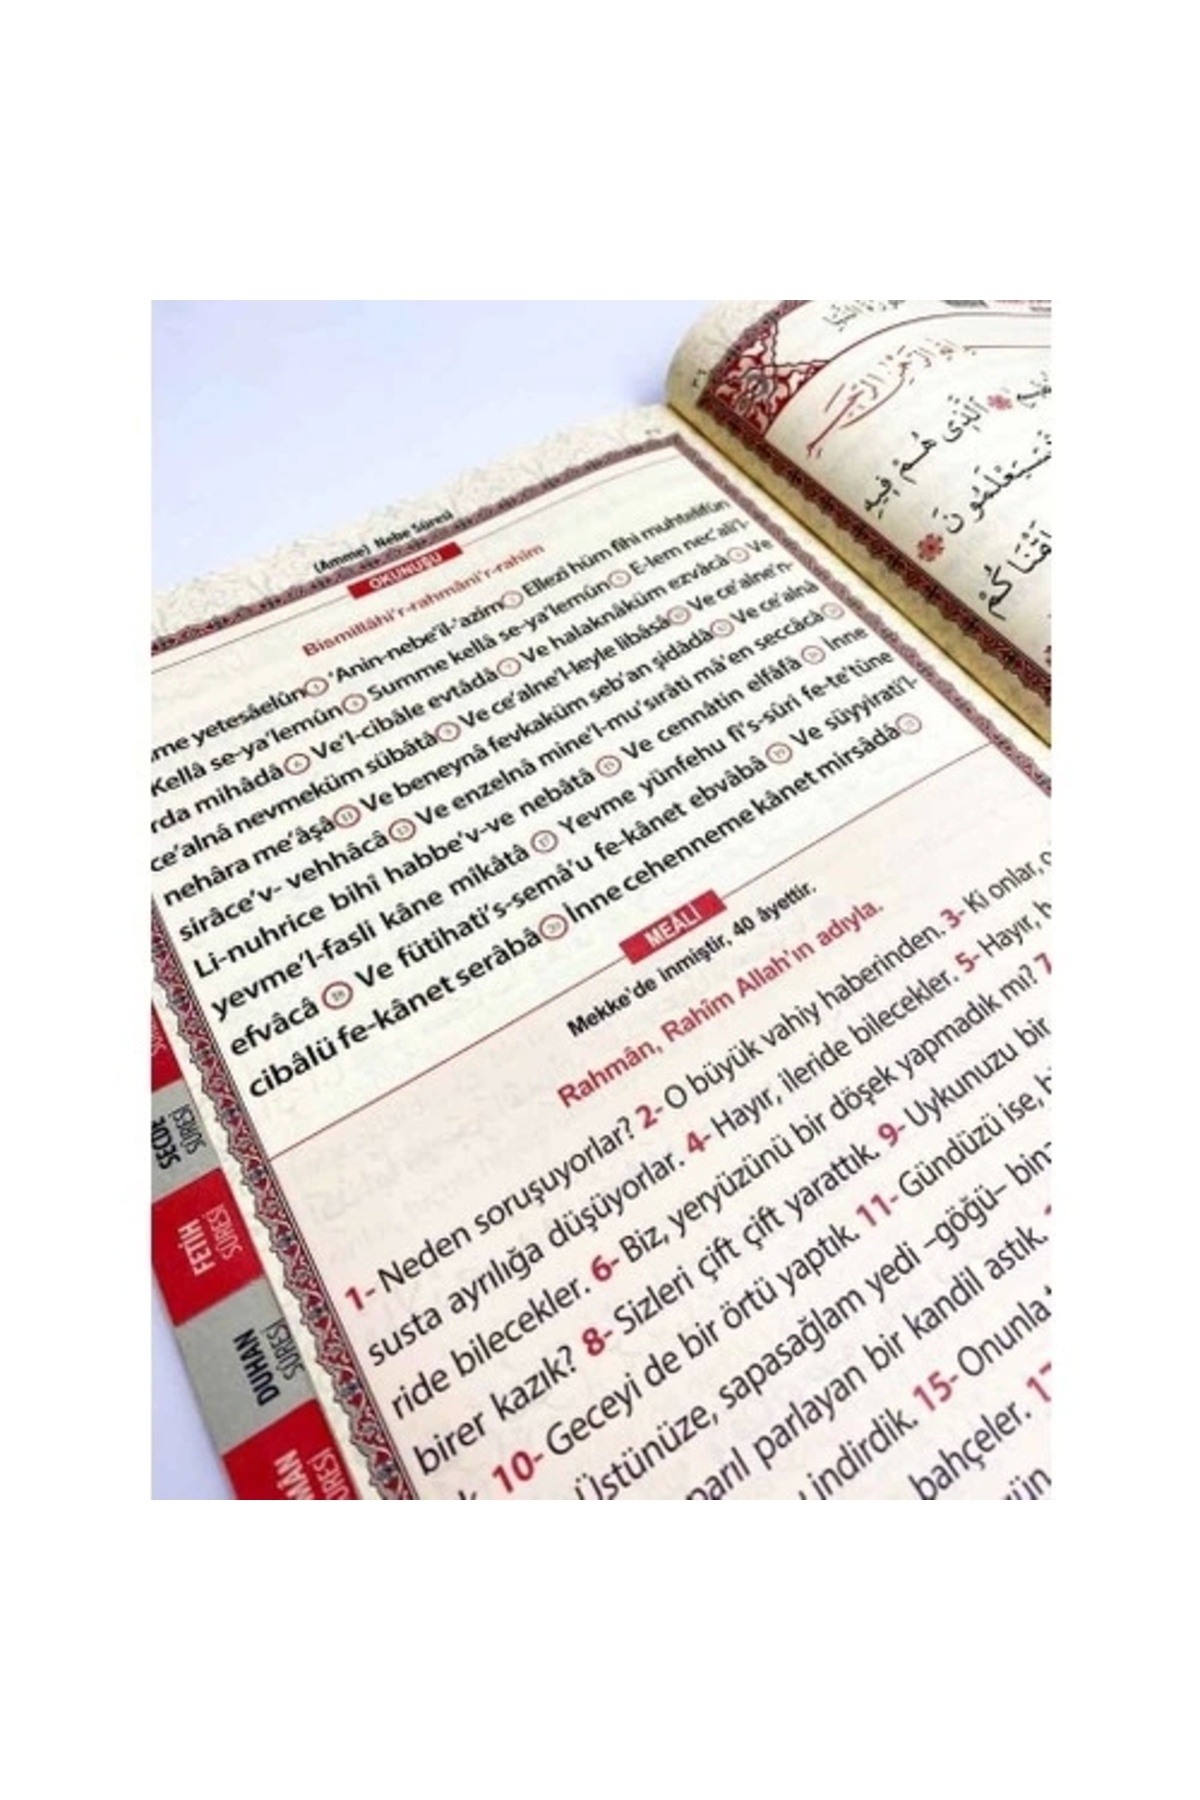 (Amme) Nebe Sûresi
OKUNUŞU
Bismillâhi'r-rahmâni'r-rahîm
me yetesâelûn 'Anin-nebe'il-'azîm Ellezî hüm fîhi muhtelifûn
Kellâ se-ya'lemûn Summe kellâ se-ya'lemûn E-lem nec'ali'l-
rda mihâdâ Ve'l-cibâle evtâdâ Ve halaknâküm ezvâcâ Ve
ce'alnâ nevmeküm sübâtâ Ve ce'alne'l-leyle libâsâ Ve ce'alne'n-
nehâra me'âşâ Ve beneynâ fevkaküm seb'an şidâdâ Ve ce'alnâ
sirâce'v- vehhâcâ Ve enzelnâ mine'l-mu'sırâti mâ'en seccâcâ
Li-nuhrice bihî habbe'v-ve nebâtâ Ve cennâtin elfâfâ İnne
yevme'l-fasli kâne mîkâtâ Yevme yünfehu fi's-sûri fe-te'tûne
efvâcâ Ve fütihati's-semâ'u fe-kânet ebvâbâ Ve süyyirati'l-
cibâlü fe-kânet serâbâ İnne cehenneme kânet mirsâdâ
MEALİ
Mekke'de inmiştir, 40 âyettir.
Rahmân, Rahîm Allah'ın adıyla.
1- Neden soruşuyorlar? 2- O büyük vahiy haberinden. 3- Ki onlar,
susta ayrılığa düşüyorlar. 4- Hayır, ileride bilecekler. 5- Hayır,
ride bilecekler. 6- Biz, yeryüzünü bir döşek yapmadık mı? 7
birer kazık? 8- Sizleri çift çift yarattık. 9- Uykunuzu bir
10- Geceyi de bir örtü yaptık. 11- Gündüzü ise,
Üstünüze, sapasağlam yedi –göğü– bin
parıl parlayan bir kandil astık.
indirdik. 15- Onunla
bahçeler.
SECDE
SÛRESİ
FETİH
SÛRESİ
DUHAN
SÛRESİ
اَلَّذِى هُمْ فِيهِ